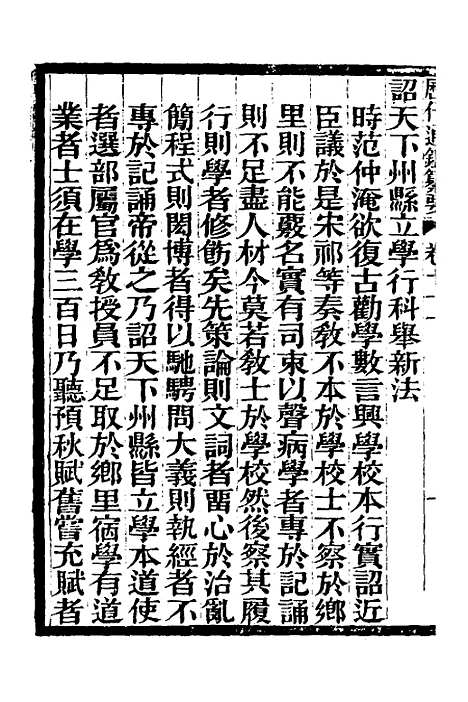 詔天下州縣立學行科舉新法
時范仲淹欲復古勸學數言興學校本行實詔近
臣議於是宋祁等奏敎不本於學校士不察於鄉
里則不能覈名實有司束以聲病學者專於記誦
則不足盡人材今莫若敎士於學校然後察其履
行則學者修飭矣先策論則文詞者畱心於治亂
簡程式則閎博者得以馳騁問大義則執經者不
專於記誦帝從之乃詔天下州縣皆立學本道使
者選部屬官爲敎授員不足取於鄉里宿學有道
業者士須在學三百日乃聽預秋賦舊嘗充賦者